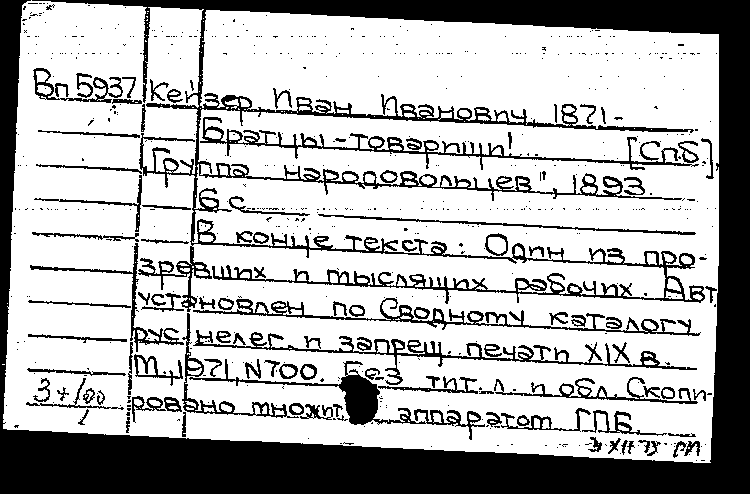 Вп 5937 Кейзер, Иван Иванович, 1871-
Братцы-товарищи!.. [Спб.],
"Группа народовольцев", 1893.
6 с.
В конце текста: Один из про-
зревших и мыслящих рабочих. Авт.
установлен по Сводному каталогу
рус. нелег. и запрещ. печати XIX в.
М., 1971, N700. Без тит. л. и обл. Скопи-
ровано множит. аппаратом ГПБ.
3+100